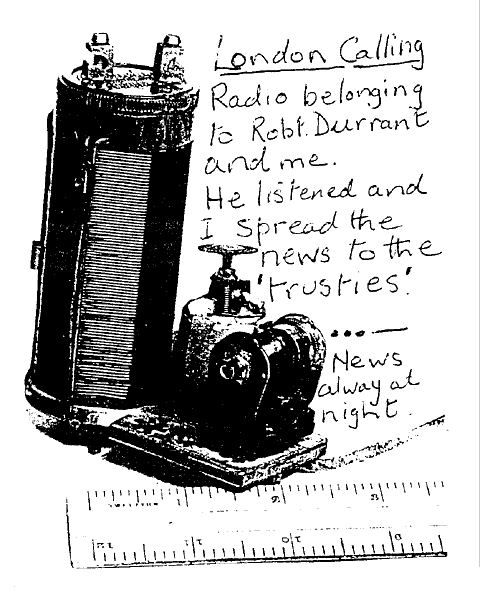 London Calling
Radio belonging
to Robt. Durrant
and me.
He listened and
I spread the
news to the
'trusties'.
...—
News
alway at
night.
12 11 10 9